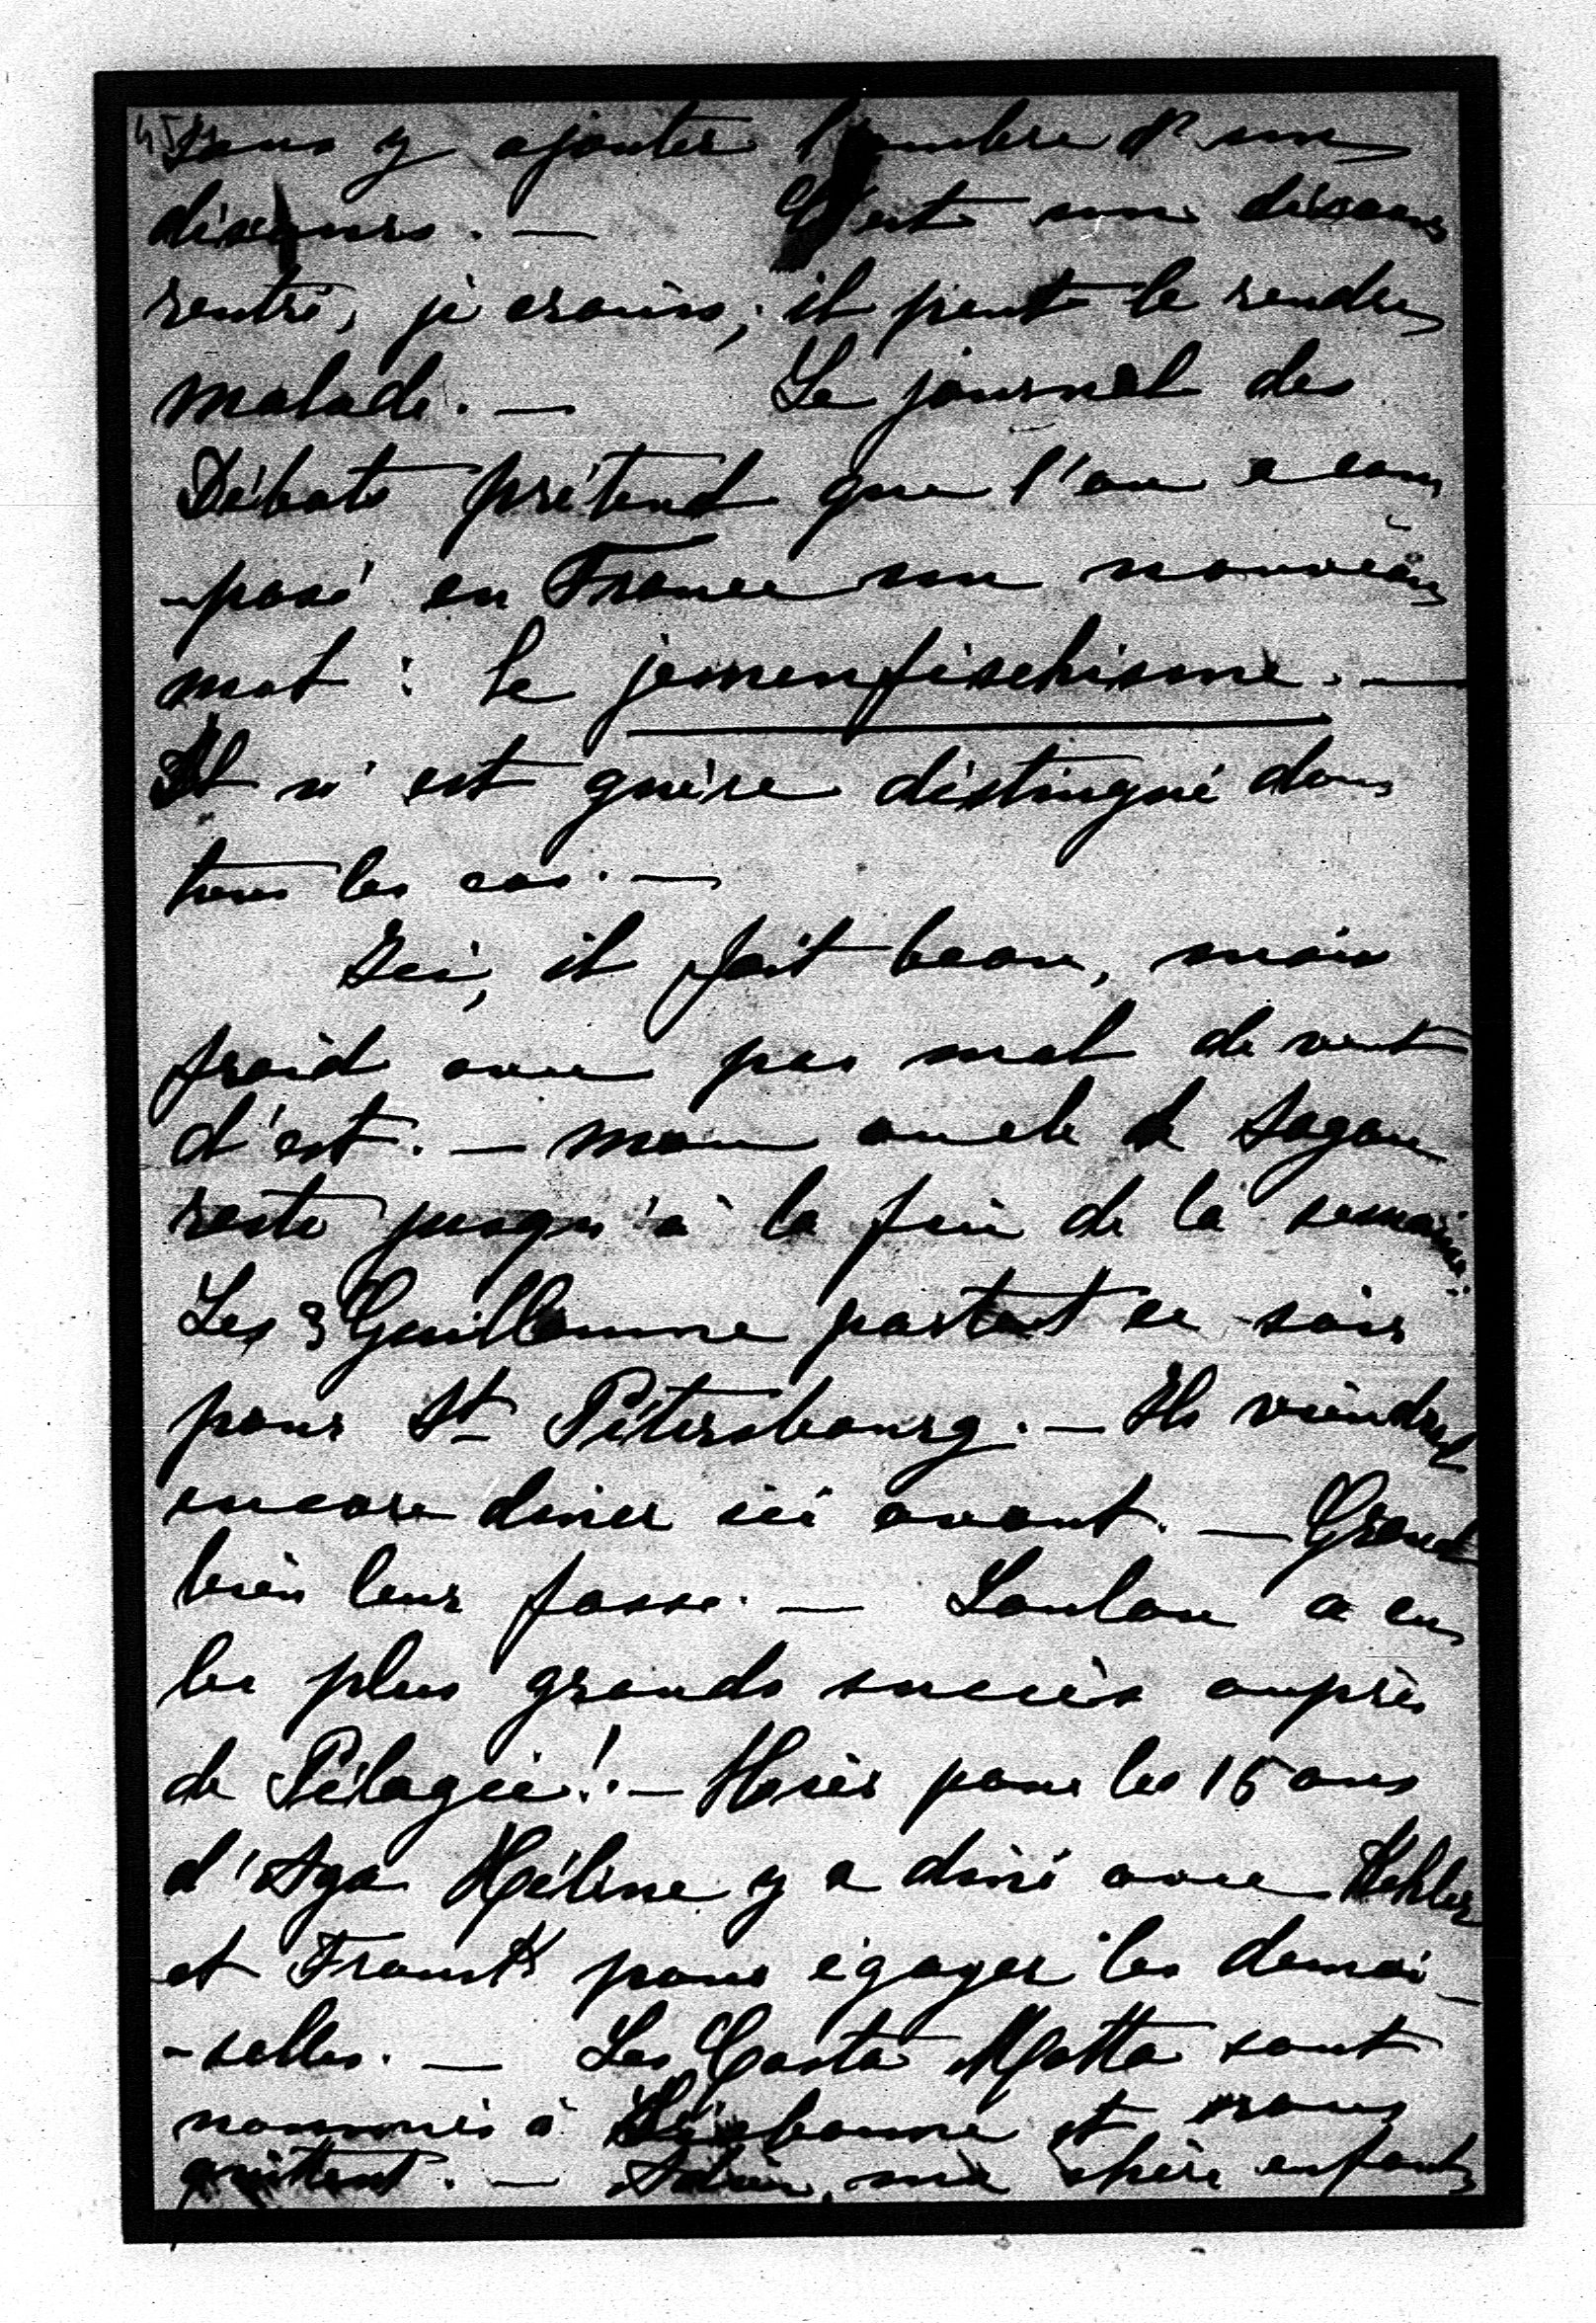 sans y ajouter l'ombre d'un
discours. — C'est un discours
rentré, je crains; il peut le rendre
malade. — Le journal des
Débats prétend que l'on a com
-posé en France un nouveau
mot : le jemenfischisme. —
Il n'est guère distingué dans
tous les cas. —
Ici, il fait beau, mais
froid avec pas mal de vent
d'est. — Mon oncle de Sagan
reste jusqu'à la fin de la semaine.
Les 3 Guillaume partent ce soir
pour St Pétersbourg. — Ils viendront
encore diner ici avant. — Grand
bien leur fasse. — Loulou a eu
les plus grands succès auprès
de Pélagie! — Hier pour les 15 ans
d'Aga Hélène y a diné avec
et pour égayer les demoi-
-selles. — Les Costa Motta sont
nommés à Lisbonne et nous
quittent. — Adieu, ma chère enfant